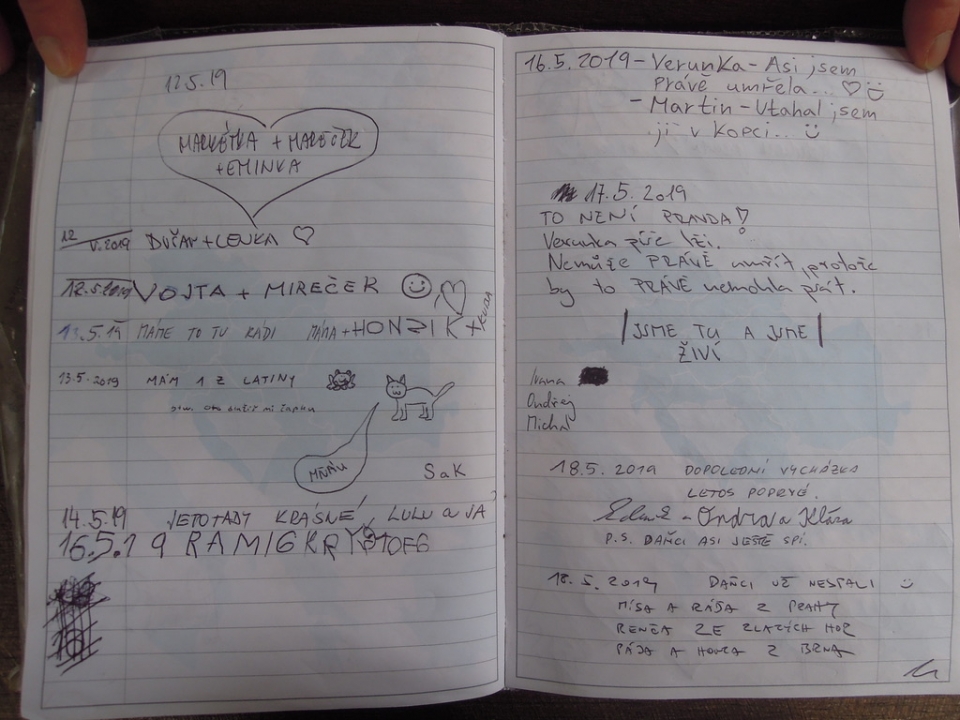 12.5.19
MARKÉTKA + MAREČEK
+ EMINKA
12 V. 2019 DUŠAN + LENKA ♡
12.5.2019 VOJTA + MIREČEK
13.5.19 MÁME TO TU RÁDI MÁMA + HONZIK +
13.5.2019 MÁM 1 Z LATINY
MŇAU
SaK
14.5.19 JETOTADY KRÁSNÉ LULU a JA
16.5.19 RAMIGKRYŠTOFG
16.5.2019 - Verunka - Asi jsem
právě umřela... ♡
- Martin - Utahal jsem
ji v kopci...
17.5.2019
TO NENÍ PRAVDA!
Verunka píše lži.
Nemůže PRÁVĚ umřít, protože
by to PRÁVĚ nemohla psát.
JSME TU A JSME
ŽIVÍ
Ivana
Ondřej
Michal
18.5.2019 DOPOLEDNÍ VYCHÁZKA
LETOS POPRVÉ.
Ondra a Klára
P.S. DAŇCI ASI JEŠTĚ SPÍ.
18.5.2019 DAŇCI UŽ NESPALI
MÍSA A RÁĎA Z PRAHY
RENČA ZE ZLATÝCH HOR
PÁJA A HONZA Z BRNA